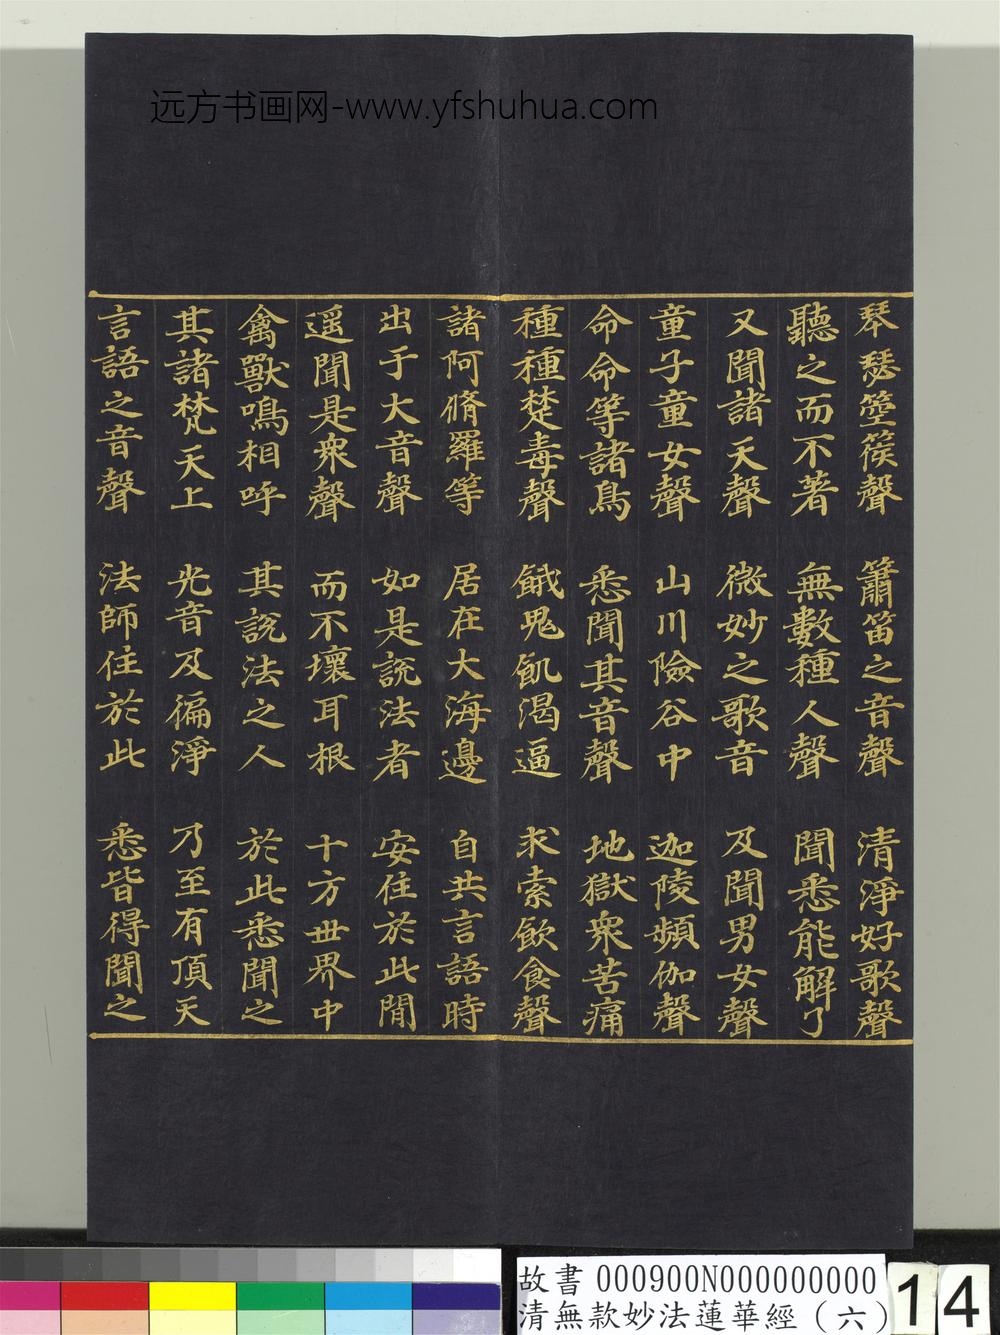 远方书画网-www.yfshuhua.com
琴瑟箜篌聲 簫笛之音聲 清淨好歌聲
聽之而不著 無數種人聲 聞悉能解了
又聞諸天聲 微妙之歌音 及聞男女聲
童子童女聲 山川險谷中 迦陵頻伽聲
命命等諸鳥 悉聞其音聲 地獄衆苦痛
種種楚毒聲 餓鬼飢渴逼 求索飲食聲
諸阿脩羅等 居在大海邊 自共言語時
出于大音聲 如是說法者 安住於此間
遥聞是衆聲 而不壞耳根 十方世界中
禽獸鳴相呼 其說法之人 於此悉聞之
其諸梵天上 光音及徧淨 乃至有頂天
言語之音聲 法師住於此 悉皆得聞之
故書 000900N000000000
清無款妙法蓮華經（六）
14